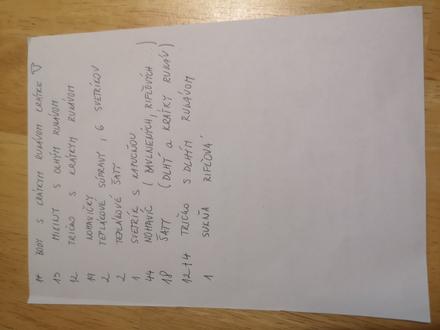 14 BODY S KRÁTKYM RUKÁVOM KRÁTKE
15 S DLHÝM RUKÁVOM
12 TRIČKO S KRÁTKYM RUKÁVOM
19 NOHAVIČKY
2 TEPLÁKOVÉ SÚPRAVY , 6 SVETRÍKOV
2 TEPLÁKOVÉ ŠATY
1 SVETRÍK S KAPUCŇOU
44 NOHAVÍC ( BAVLNENÝCH, RIFĽOVÝCH )
18 ŠATY ( DLHÝ a KRÁTKY RUKÁV )
12+4 TRIČKO S DLHÝM RUKÁVOM
1 SUKŇA RIFĽOVÁ